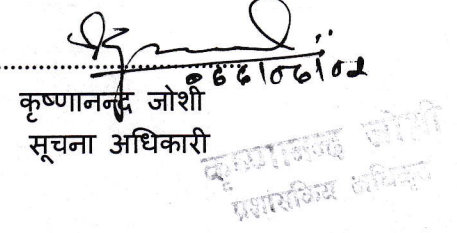 ०६६/०६/०२
कृष्णानन्द जोशी
सूचना अधिकारी
कृष्णानन्द जोशी
प्रशासकिय अधिकृत